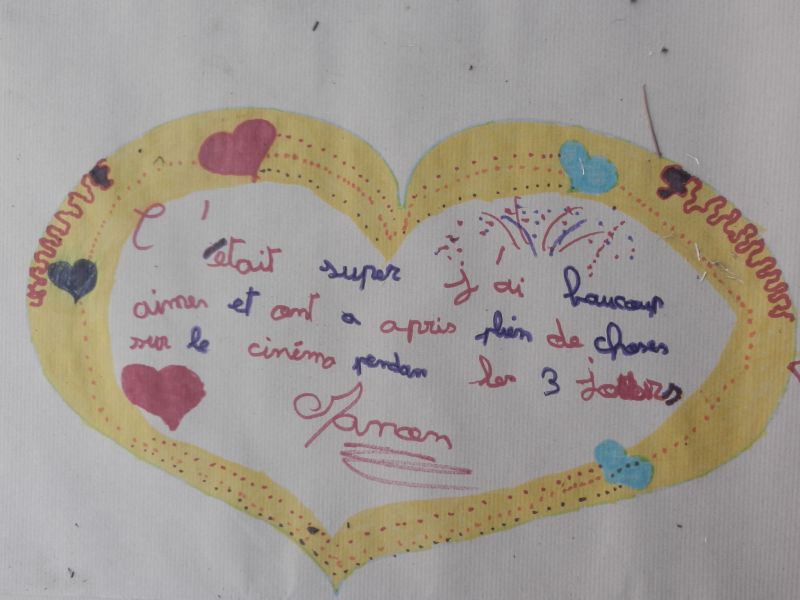 C'était super J'ai baucoup
aimer et ont a apris plien de choses
sur le cinéma pendan les 3 jours
Manon